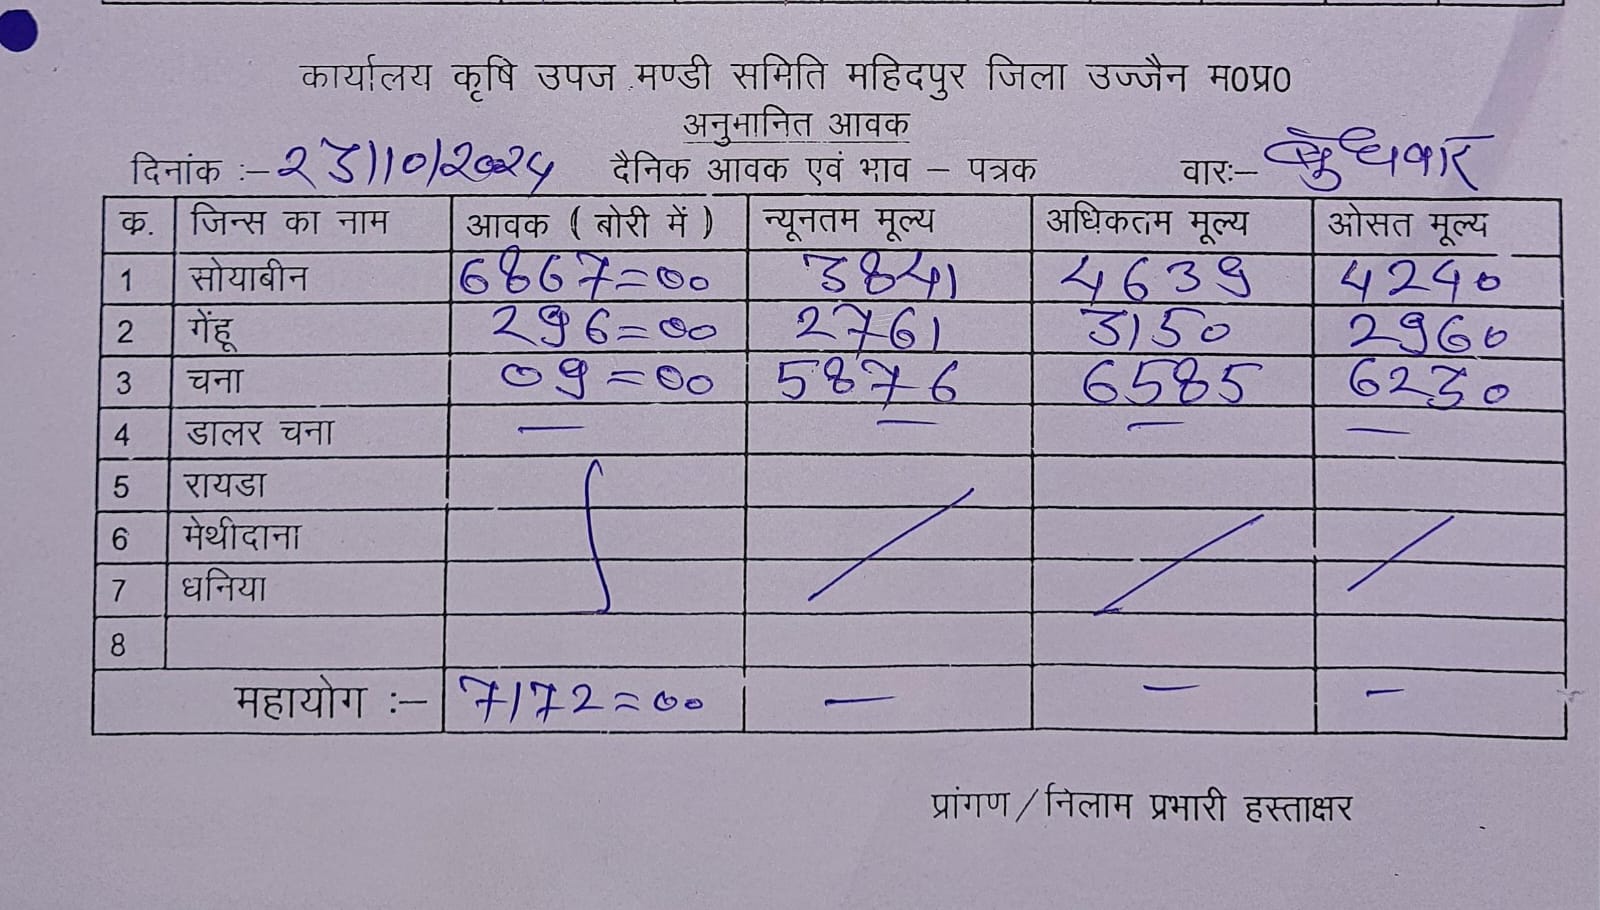 कार्यालय कृषि उपज मण्डी समिति महिदपुर जिला उज्जैन म0प्र0
अनुमानित आवक
दिनांक :– 23/10/2024 दैनिक आवक एवं भाव – पत्रक वारः– बुधवार
क. जिन्स का नाम आवक ( बोरी में ) न्यूनतम मूल्य अधिकतम मूल्य ओसत मूल्य
1 सोयाबीन 6867=00 3841 4639 4240
2 गेंहू 296=00 2761 3150 2960
3 चना 09=00 5876 6585 6230
4 डालर चना — — — —
5 रायडा
6 मेथीदाना
7 धनिया
8
महायोग :– 7172=00 — — —
प्रांगण / निलाम प्रभारी हस्ताक्षर